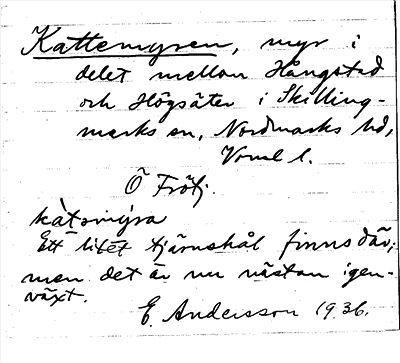 Kattemyren, myr i
delet mellan Hångstad
och Högsäter i Skilling-
marks sn, Nordmarks hd,
Vrml l.
Ö Frötj.
kàtəmýra
Ett litet tjärnshål finns där;
men det är nu nästan igen-
växt.
E. Andersson 1936.